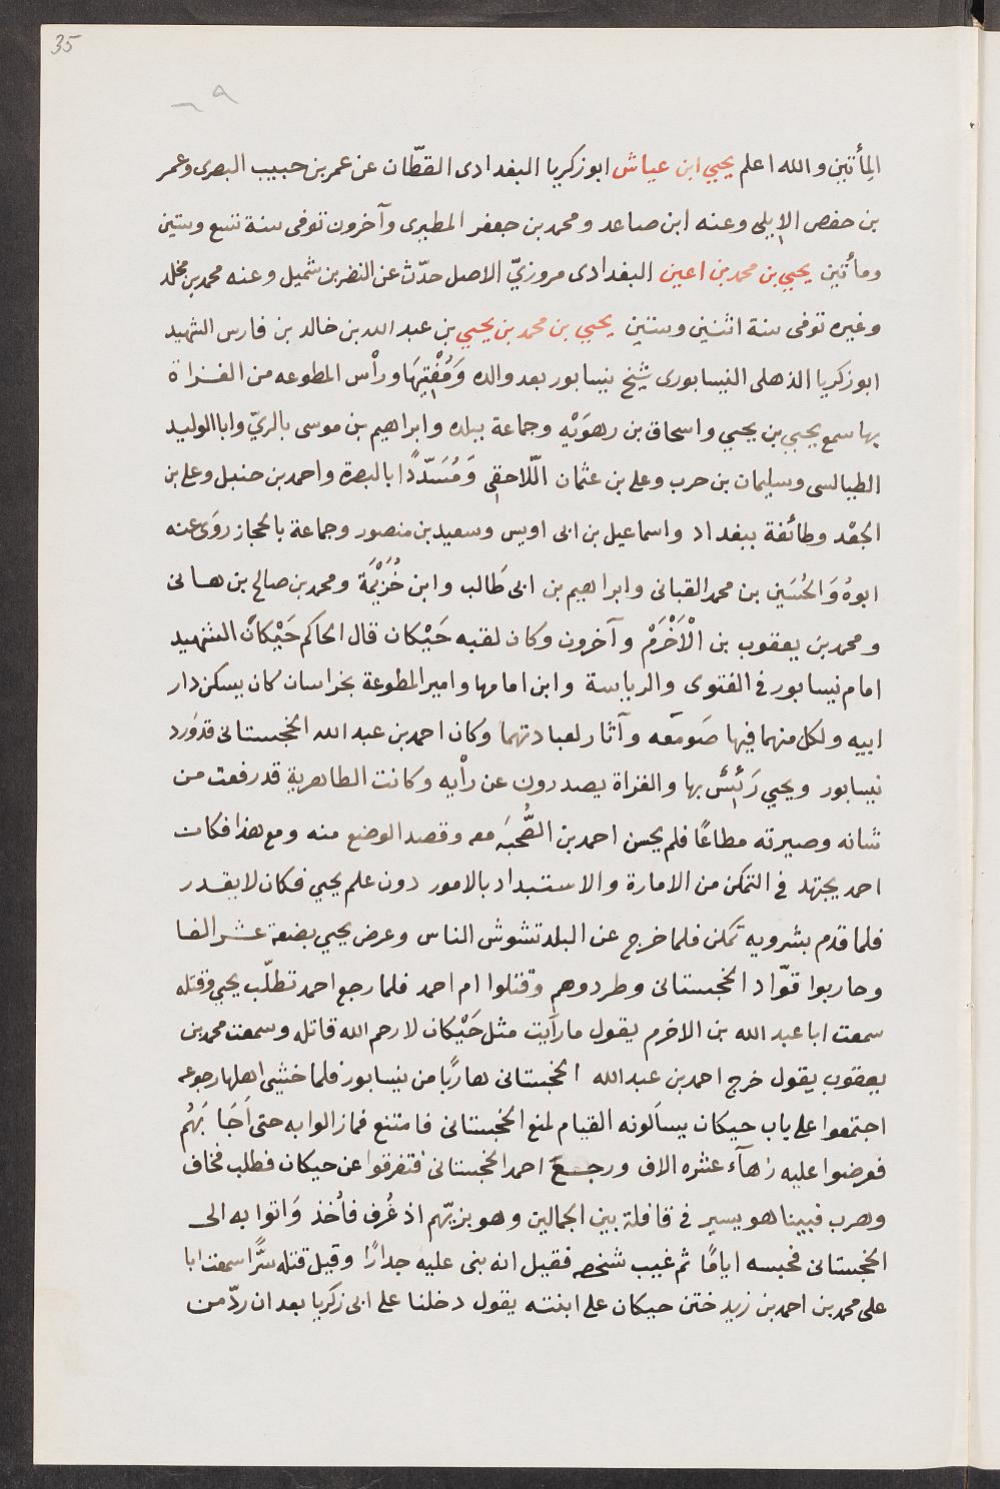 35
٦٩
المِأتين والله اعلم يحيي ابن عياش ابو زكريا البغدادى القطّان عن عمر بن حبيب البصرى وعمر
بن حفص الإبلى وعنه ابن صاعد ومحمد بن جعفر المطيرى وآخرون توفى سنة تسع وستين
ومأتين يحيي بن محمد بن اعين البغدادى مروزيّ الاصل حدّث عن النضر بن شميل وعنه محمد بن مخلد
وغيره توفى سنة اثنين وستين يحيي بن محمد بن يحيي بن عبد الله بن خالد بن فارس الشهيد
ابو زكريا الذهلى النيسابورى شيخ نيسابور بعد والده وَمُفْتِيهَا ورأْس المطوعه من الغزاة
بها سمع يحيي بن يحيي واسحاق بن رهوَيْه وجماعة ببلده وابراهيم بن موسى بالريّ وابا الوليد
الطيالسى وسليمان بن حرب وعلى بن عثمان اللّاحقى وَمُسَدّدًا بالبصرة واحمد بن حنبل وعلى بن
الجعْد وطائفة ببغداد واسماعيل بن ابى اويس وسعيد بن منصور وجماعة بالحجاز روَى عنه
ابوهُ وَالحُسَين بن محمد القبانى وابراهيم بن ابى طَالب وابن خُزَيْمَة ومحمد بن صالح بن هانى
ومحمد بن يعقوب بن الْأَخْرَمْ وآخرون وكان لقبه حَيْكان قال الحاكم حَيْكانُ الشهيد
امام نيسابور فى الفتوى والرياسة وابن امامها وامير المطوعة بخراسان كان يسكن دار
ابيه ولكل منهما فيها صَومَعه وآثار لعبادتهما وكان احمد بن عبد الله الخجستانى قد وَرد
نيسابور ويحيي رَئِيسٌ بها والغزاة يصدرون عن رأْيه وكانت الطاهرية قد رفعت من
شانه وصيرته مطاعًا فلم يحسن احمد بن الصُّحبَه معه وقصد الوضع منه ومع هذا فكان
احمد يجتهد فى التمكن من الامارة والاستبداد بالامور دون علم يحيي فكان لا يقدر
فلما قدم بشرويه تمكن فلما خرج عن البلد تشوش الناس وعرض يحيي بضعة عشر الفا
وحاربوا قوّاد الخجستانى وطردوهم وقتلوا ام احمد فلما رجع احمد تطلّب يحيي وقتله
سمعت ابا عبد الله بن الاخرم يقول ما رأيت مثل حَيْكان لا رحم الله قاتله وسمعت محمد بن
يعقوب يقول خرج احمد بن عبد الله الخجستانى هاربًا من نيسابور فلما خشى اهلها رجوعه
اجتمعوا على باب حيكان يسألونه القيام لمنع الخجستانى فامتنع فما زالوا به حتى اَجَابَهُم
فعرضوا عليه زهآء عشره الاف ورجعَ احمد الخجستانى فتفرقوا عن حيكان فطلب فخاف
وهرب فبينا هو يسير فى قافلة بين الجمالين وهو بزيّهم اذ عُرف فأُخذ وَاتوا به الى
الخجستانى فحبسه ايامًا ثم غيب شخصه فقيل انه بنى عليه جدارًا وقيل قتله سرًّا سمعت ابا
على محمد بن احمد بن زيد ختن حيكان على ابنته يقول دخلنا على ابى زكريا بعد ان ردّ من